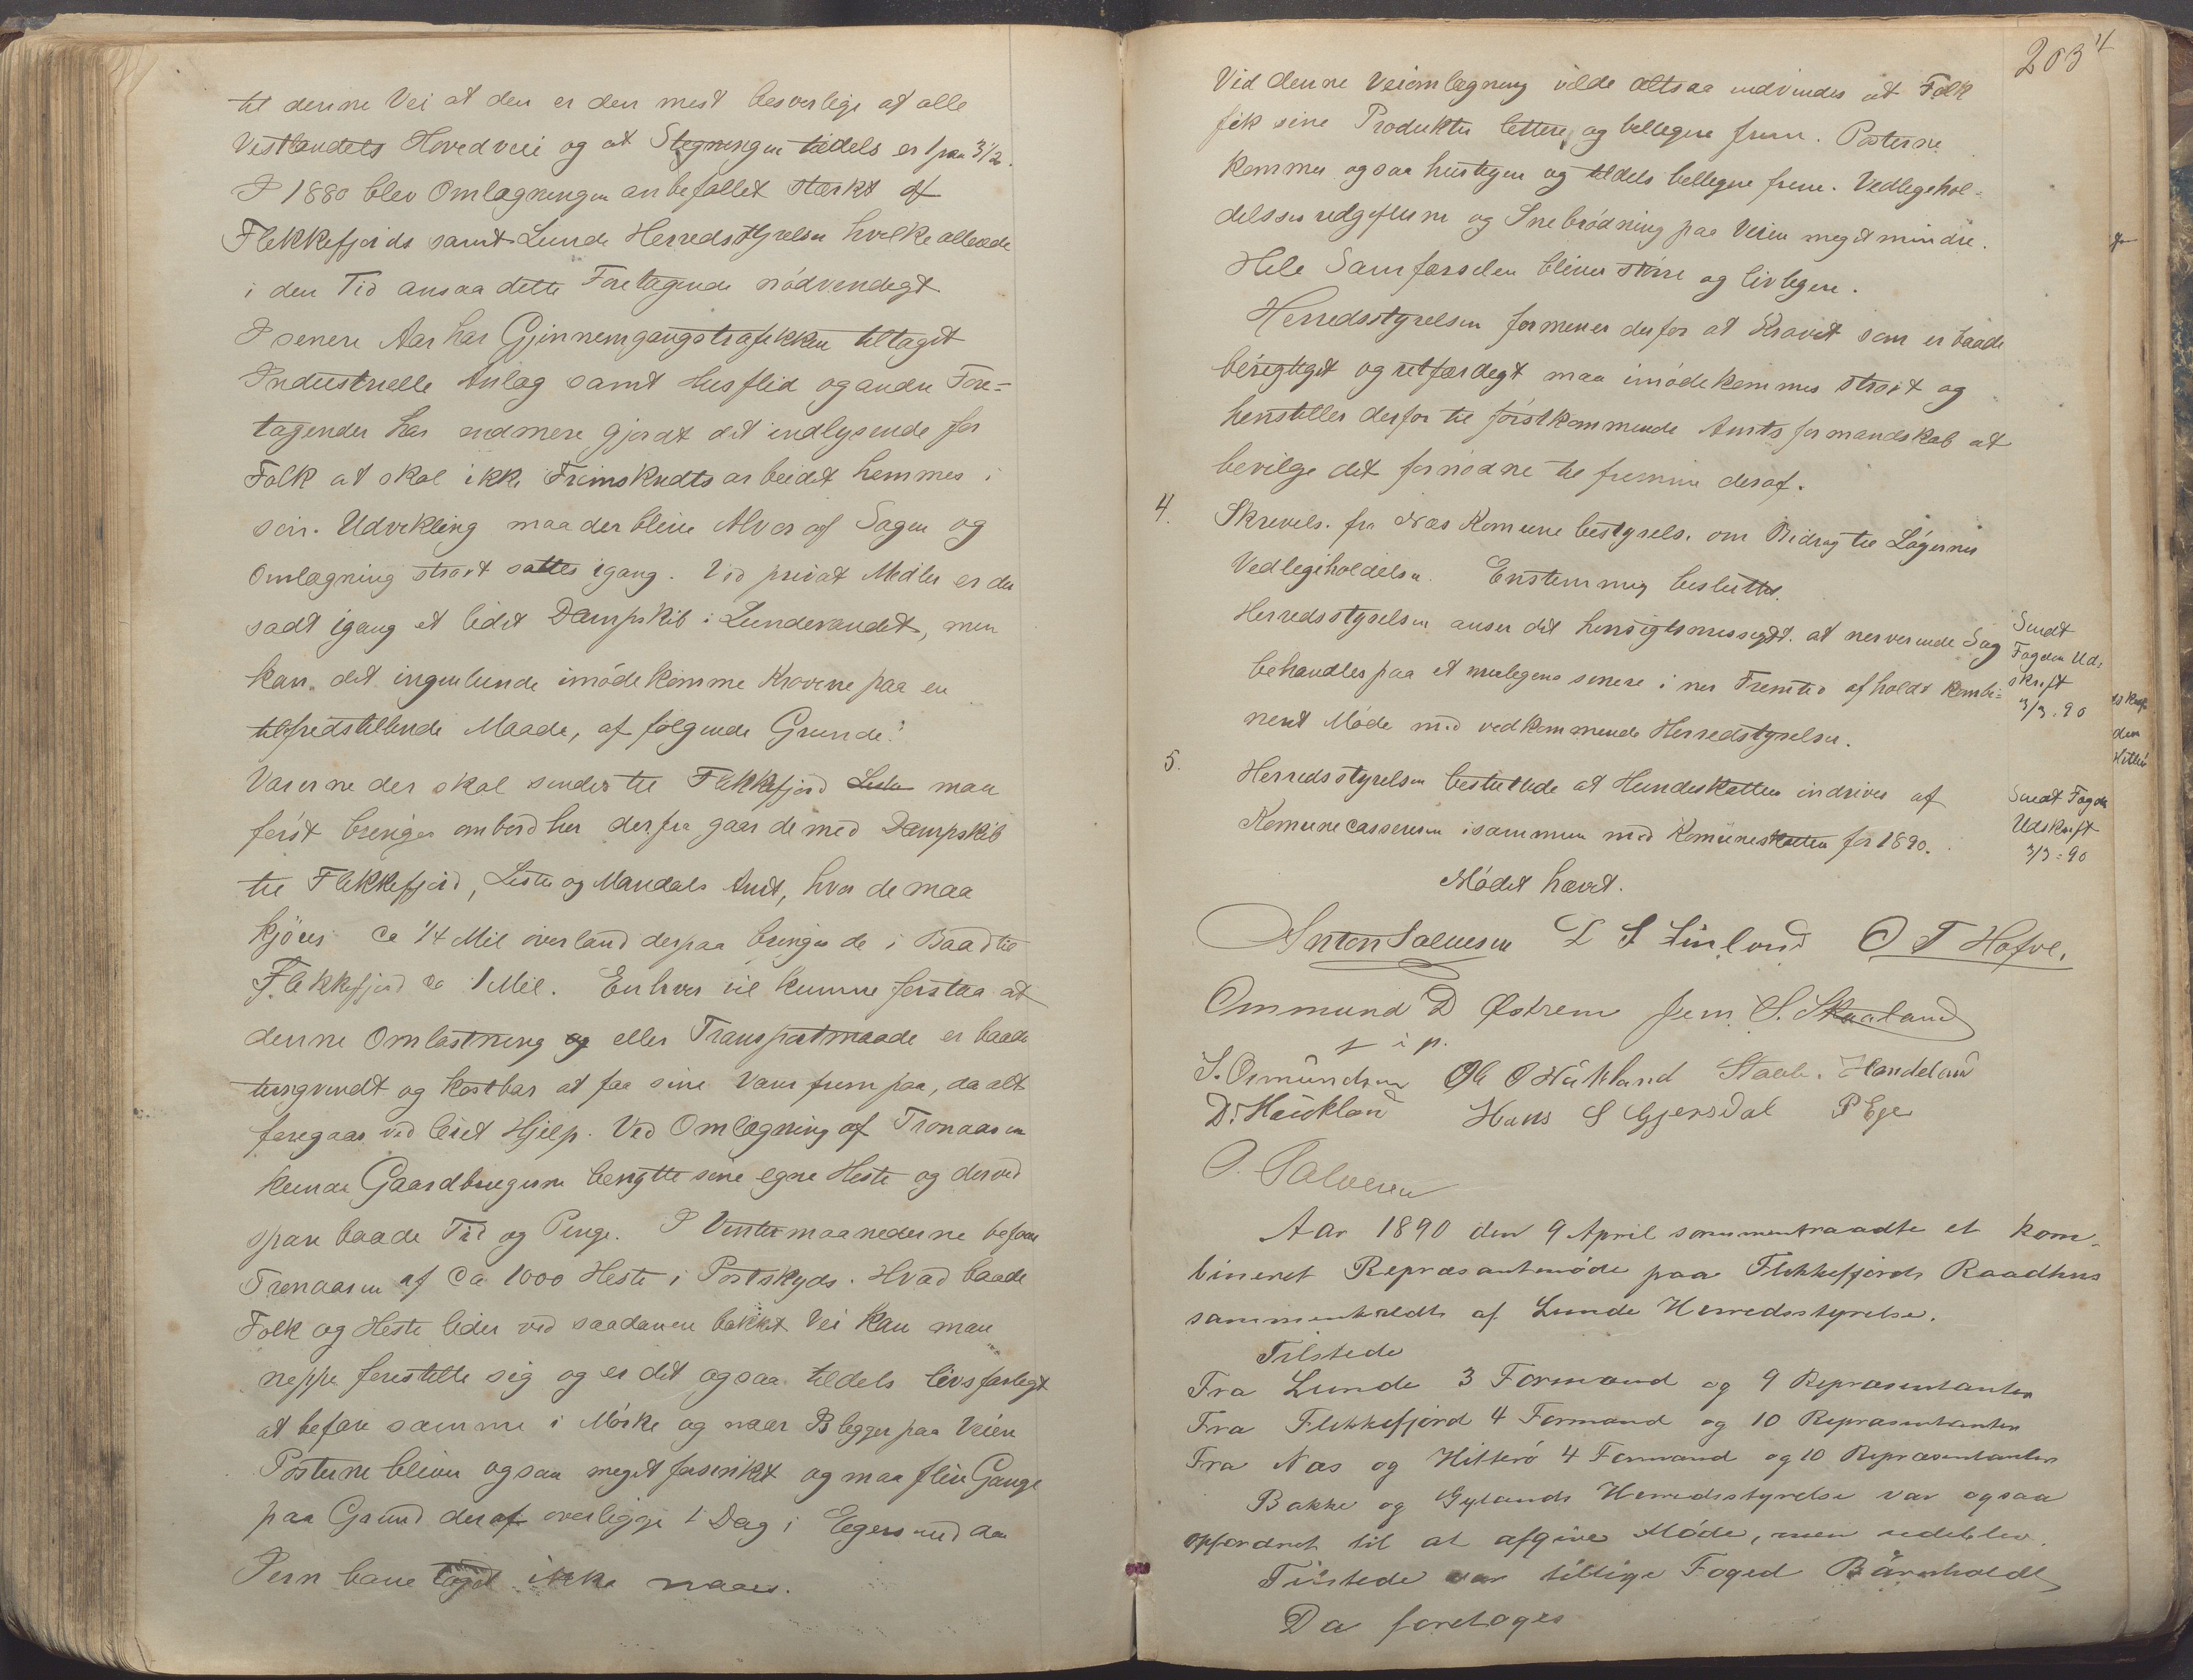 til denne Vei at den er den mest besverlige af alle
Vestlandets Hovedveie og at Stegningen tildels er 1 paa 3 1/2.
I 1880 blev Omlægningen anbefallet stærkt af
Flekkefjords samt Lunde Herredsstyrelse hvilke allerede
i den Tid ansaa dette Foretagende nödvendigt
I senere Aar har Gjennemgangstrafikken tiltaget
Industrielle Anlæg samt Husflid og andre Fore=
tagender har endmere gjordt det indlysende for
Folk at skal ikke Fremskridts arbeidet hemmes i
sin Udvikling maa der blive Alvor af Sagen og
Omlægning strax sættes igang. Ved privat Midler er der
sadt igang et lidet Dampskib i Lundevandet, men
kan det ingenlunde imödekomme Kravene paa en
tilfredstillende Maade, af fölgende Grunde:
Varerne der skal sendes til Flekkefjord maa
först bringes ombord her derfra gaar de med Dampskib
til Flekkefjord, Lister og Mandals Amt, hvor de maa
kjöres ca 1/4 Mil overland derpaa bringes de i Baad til
Flekkefjord ca 1 Mil. Enhver vil kunne forstaa at
denne Omlastning og eller Transportmaade er baade
tungvindt og kostbar at faa sine Varer frem paa, da alt
foregaar ved leiet Hjelp. Ved Omlægning af Tronaasen
kunde Gaardbrugerne benytte sine egne Heste og derved
spare baade Tid og Penge. I Vintermaanederne befares
Tronaasen af Ca 1000 Heste i Postskyds. Hvad baade
Folk og Heste lider ved saadanen bakket Vei kan man
neppe forestille sig og er det ogsaa tildels livsfarlegt
at befare samme i Mörke og naar Is legger paa Veien
Posterne bliver ogsaa meget forsinket og maa flere Gange
paa Grund deraf overligge 1 Dag i Egersund da
Jernbane toget ikke naaes.
203
Ved denne Veiomlægning vilde altsaa indvindes at Folk
fik sine Produkter lettere og billigere frem. Posterne
kommer ogsaa hurtigere og tildels billigere frem. Vedligehol=
delses udgifterne og Snebrödning paa Veien meget mindre.
Hele Samfærselen bliver större og livligere.
Herredsstyrelsen formener derfor at Kravet som er baade
berigtiget og retfærdegt maa imödekommes strax og
henstiller derfor til förstkommende Amtsformandskab at
bevilge det fornödne til fremme deraf.
4. Skrivelse fra Næs Komune bestyrelse om Bidrag til
Vedligeholdelse. Enstemmig besluttet.
Herredsstyrelsen anser det hensigtsmessegst at nerverende Sag
behandles paa et muligens senere i ner Fremtid afholdt Kombi=
nert Möde med vedkommende Herredstyrelser.
Sendt
Fogden Ud=
skrift
3/3-90
5. Herredsstyrelsen besluttede at Hundeskatten indrives af
Komunecassereren isammen med Komuneskatten for 1890.
Sendt Fogden
Udskrift
3/3-90
Mödet hævet.
Anton Salvesen L S Linland O T Hafve.
Ommund D Østrem Jem. S. Skaaland
S. Osmundsen Ole O Haukland Staale Handeland
D. Haukland Hans S Gjersdal P Ege
O. Salvesen
Aar 1890 den 9 April sammentraadte et kom-
bineret Repræsantmöde paa Flekkefjords Raadhus
sammenkaldte af Lunde Herredsstyrelse.
Tilstede
Fra Lunde 3 Formænd og 9 Repræsentanter
Fra Flekkefjord 4 Formænd og 10 Repræsentanter
Fra Næs og Hitterö 4 Formænd og 10 Repræsentanter
Bakke og Gylands Herredsstyrelse var ogsaa
opfordret til at afgive Möde, men udeblev.
Tilstede var tillige Foged Bärnholdt
Da foretoges